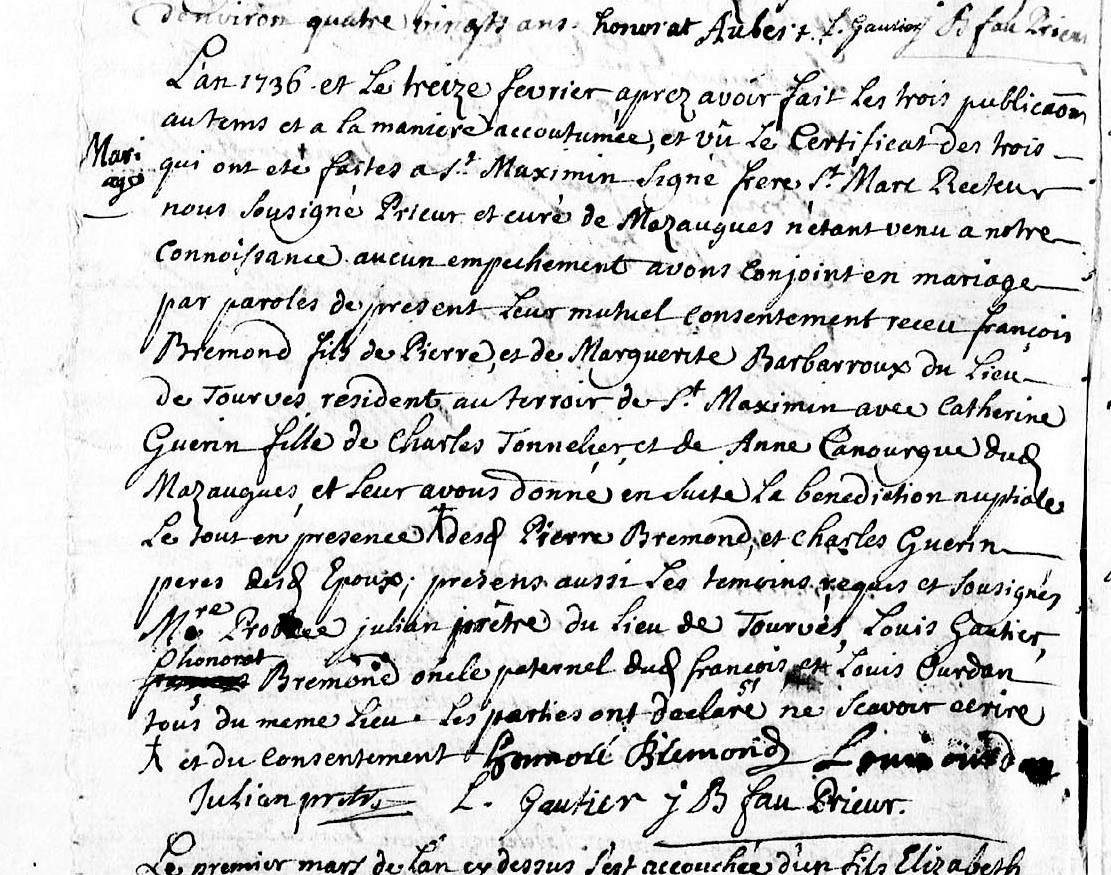 d'environ quatre vingts ans. honorat Aubert. L. Gautier J B fau Prieur
L'an 1736 et Le treize fevrier aprez avoir fait Les trois publicaõns
au tems et a la maniere accoutumée, et vû Le Certificat des trois
Mari
age
qui ont eté faites a St. Maximin Signé frere St. Marc Recteur
nous Sousigné Prieur et curé de Mazaugues n'étant venu a notre
Connoissance aucun empechement avons Conjoint en mariage
par paroles de present Leur mutuel Consentement receu françois
Bremond fils de Pierre, et de Marguerite Barbarroux du Lieu
de Tourves résident au terroir de St. Maximin avec Catherine
Guerin fille de Charles Tonnelier, et de Anne Canourgue dud
Mazaugues, et Leur avons donné en Suite La benediction nuptiale
Le tout en presence ☩ desd Pierre Bremond, et Charles Guerin
peres desd Epoux; presens aussi Les temoins reques et Sousignés
Mre julian prêtre du Lieu de Tourves, Louis Gautier,
honorat
Bremond oncle paternel dud françois et Louis Ourdan
tous du meme Lieu. Les parties ont declaré ne Scavoir ecrire
☩ et du Consentement honnoré Bremond Louis ourdan
Julian prtre L. Gautier j B fau Prieur.
Le premier mars de L'an cy dessus S'est accouchée d'un fils Elizabeth